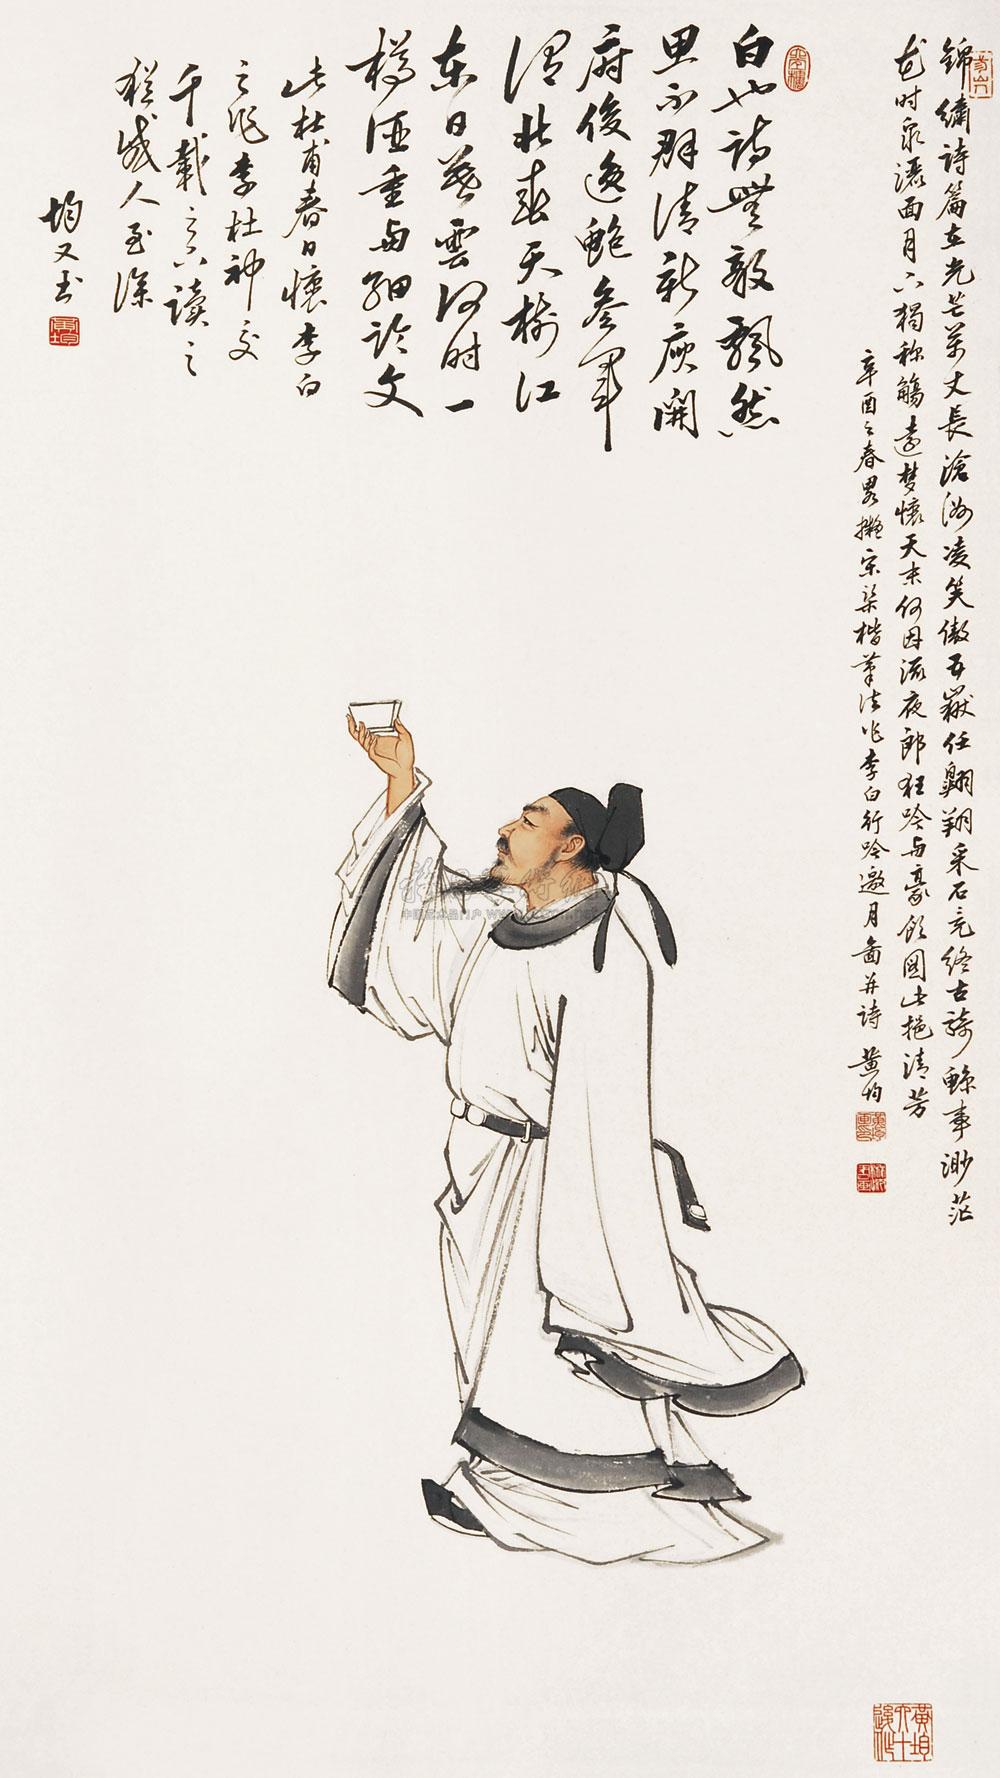 錦繡詩篇在光芒萬丈長滄洲凌笑傲五嶽任翱翔采石竟終古騎鯨事渺茫
花時永瀉面月下獨称觴遠梦懷天末何因流夜郎狂吟与豪飲圖此挹清芳
辛酉之春畧擬宋梁楷筆法作李白行吟邀月圖并詩 黄均
白也詩無敵飄然
思不群清新庾開
府俊逸鮑參軍
渭北春天樹江
東日暮雲何时一
樽酒重与細論文
此杜甫春日懷李白
之作李杜神交
千載之下读之
猶感人至深
均又书